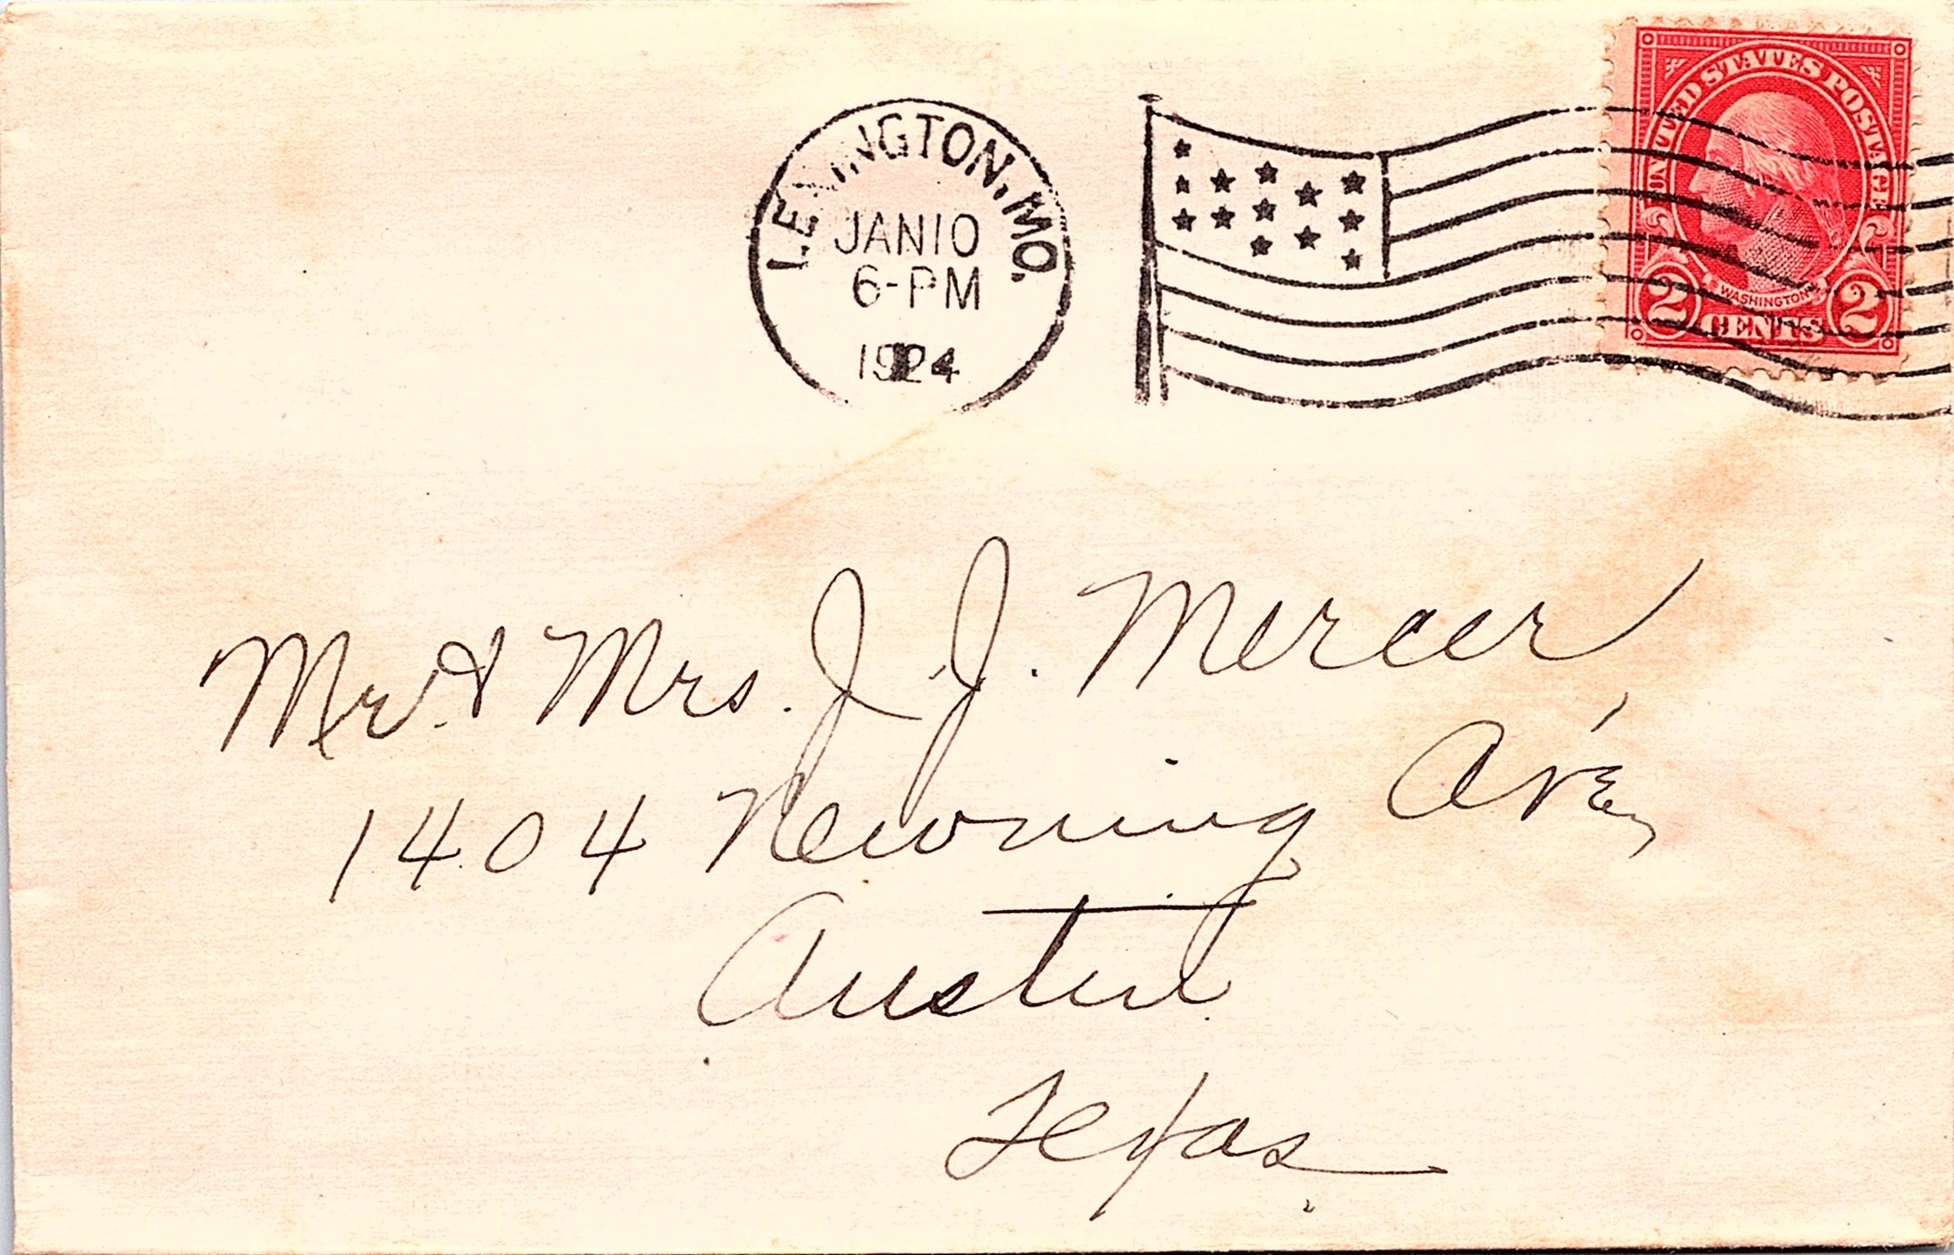 LEXINGTON, MO.
JAN 10
6-PM
1924
UNITED STATES POSTAGE
WASHINGTON
2 CENTS 2
Mr. & Mrs. J. J. Mercer
1404 Newning Ave,
Austin
Texas.